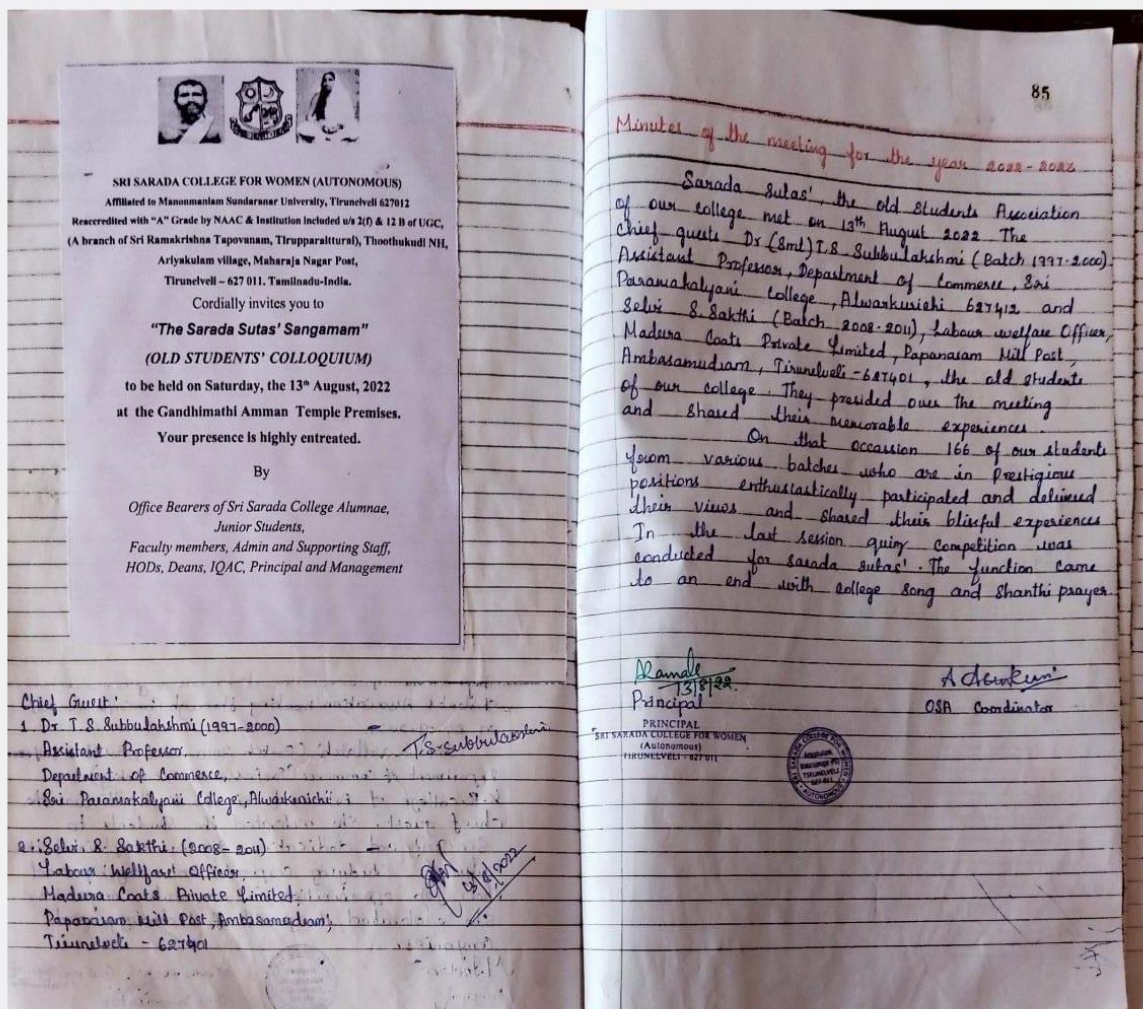 SRI SARADA COLLEGE FOR WOMEN (AUTONOMOUS)
Affiliated to Manonmaniam Sundaranar University, Tirunelveli 627012
Reaccredited with "A" Grade by NAAC & Institution included u/s 2(f) & 12 B of UGC,
(A branch of Sri Ramakrishna Tapovanam, Tirupparaitturai), Thoothukudi NH,
Ariyakulam village, Maharaja Nagar Post,
Tirunelveli – 627 011. Tamilnadu-India.
Cordially invites you to
"The Sarada Sutas' Sangamam"
(OLD STUDENTS' COLLOQUIUM)
to be held on Saturday, the 13th August, 2022
at the Gandhimathi Amman Temple Premises.
Your presence is highly entreated.
By
Office Bearers of Sri Sarada College Alumnae,
Junior Students,
Faculty members, Admin and Supporting Staff,
HODs, Deans, IQAC, Principal and Management
Chief Guest:
1. Dr. T.S. Subbulakshmi (1997-2000) - T.S. Subbulakshmi
Assistant Professor,
Department of Commerce,
Sri Paramakalyani College, Alwarkurichi
2. Selvi. S. Sakthi. (2008-2011) -
Labour Wellfare Officer, 13/8/2022
Madura Coats Private Limited,
Papanasam Mill Post, Ambasamudram,
Tirunelveli - 627401
85
Minutes of the meeting for the year 2022-2023
Sarada Sutas', the old Students Association
of our college met on 13th August 2022 The
Chief guests Dr (Smt) T.S. Subbulakshmi (Batch 1997-2000).
Assistant Professor, Department of Commerce, Sri
Paramakalyani College, Alwarkurichi 627412 and
Selvi S. Sakthi (Batch 2008-2011), Labour welfare Officer,
Madura Coats Private Limited, Papanasam Mill Post,
Ambasamudram, Tirunelveli-627401, the old students
of our college. They presided over the meeting
and shared their memorable experiences.
On that occassion 166 of our students
from various batches who are in Prestigious
positions enthustastically participated and delivered
their views and shared their blissful experiences
In the last session quiz competition was
conducted for sarada sutas'. The function came
to an end with college song and Shanthi prayer.
13/8/22.
Principal
OSA Coordinator
PRINCIPAL
SRI SARADA COLLEGE FOR WOMEN
(Autonomous)
TIRUNELVELI - 627 011
SRI SARADA COLLEGE FOR WOMEN
Ariyakulam
TIRUNELVELI
627-011
AUTONOMOUS